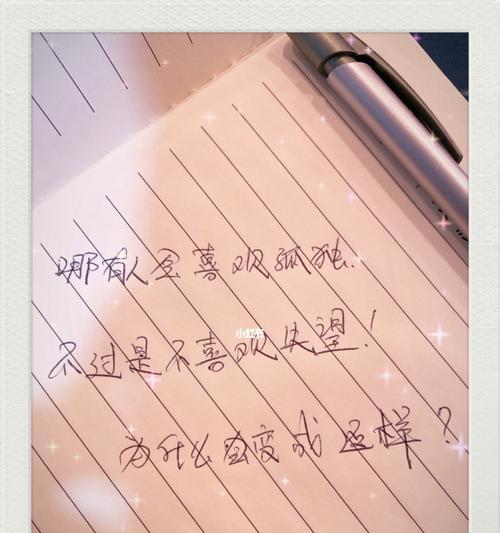 哪有人会喜欢孤独.
小红书
不过是不喜欢失望!
为什么会变成这样?